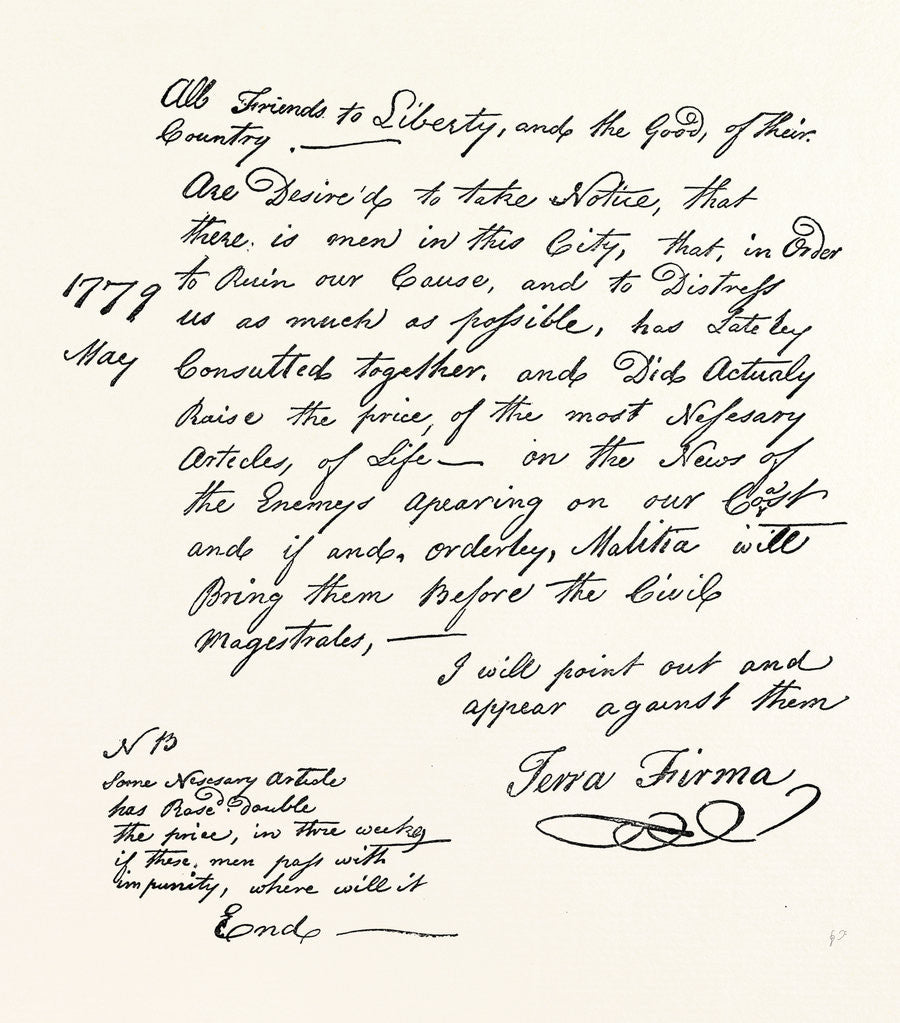 All Friends to Liberty, and the Good, of their
Country.
Are Desire'd to take Notice, that
there is men in this City, that, in Order
1779
to Ruin our Cause, and to Distress
us as much as possible, has Lateley
May
Consulted together, and Did Actualy
Raise the price, of the most Nesesary
Articles, of Life — on the News of
the Enemys apearing on our Coast
and if and, orderley, Malitia will
Bring them Before the Civil
Magestrates, —
I will point out and
appear against them
Terra Firma
N B
Some Nesesary Article
has Rased double
the price, in three weeks
if these men pass with
impunity, where will it
End —